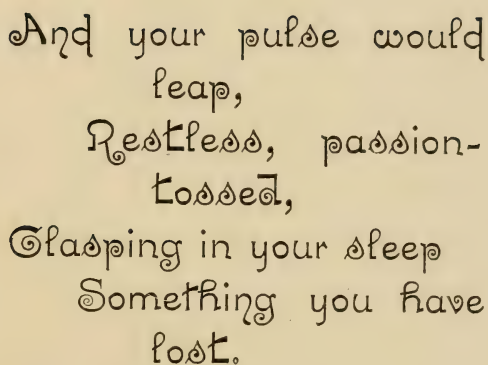 And your pulse would
leap,
Restless, passion-
tossed,
Clasping in your sleep
Something you have
lost.